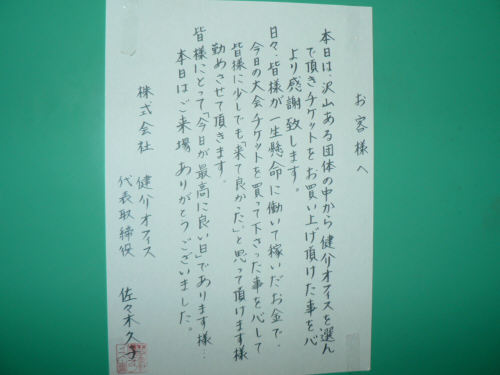 お客様へ
本日は、沢山ある団体の中から健介オフィスを選ん
で頂きチケットをお買い上げ頂けた事を心
より感謝致します。
日々、皆様が一生懸命に働いて稼いだお金で、
今日の大会チケットを買って下さった事を心して
皆様に少しでも「来て良かった」と思って頂けます様
勤めさせて頂きます。
皆様にとって「今日が最高に良い日」であります様…
本日はご来場ありがとうございました。
株式会社 健介オフィス
代表取締役 佐々木久子